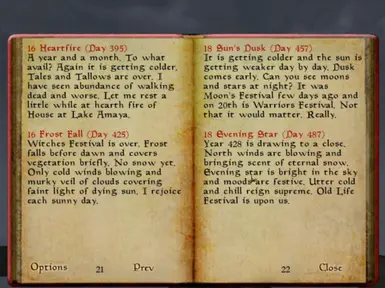 16 Heartfire (Day 395)
A year and a month. To what
avail? Again it is getting colder.
Tales and Tallows are over. I
have seen abundance of walking
dead and worse. Let me rest a
little while at hearth fire of
House at Lake Amaya.
16 Frost Fall (Day 425)
Witches Festival is over. Frost
falls before dawn and covers
vegetation briefly. No snow yet.
Only cold winds blowing and
murky veil of clouds covering
faint light of dying sun. I rejoice
each sunny day.
Options
21
Prev
18 Sun's Dusk (Day 457)
It is getting colder and the sun is
getting weaker day by day. Dusk
comes early. Can you see moons
and stars at night? It was
Moon's Festival few days ago and
on 20th is Warriors Festival. Not
that it would matter. Really.
18 Evening Star (Day 487)
Year 428 is drawing to a close.
North winds are blowing and
bringing scent of eternal snow.
Evening star is bright in the sky
and moods are festive. Utter cold
and chill reign supreme. Old Life
Festival is upon us.
22
Close